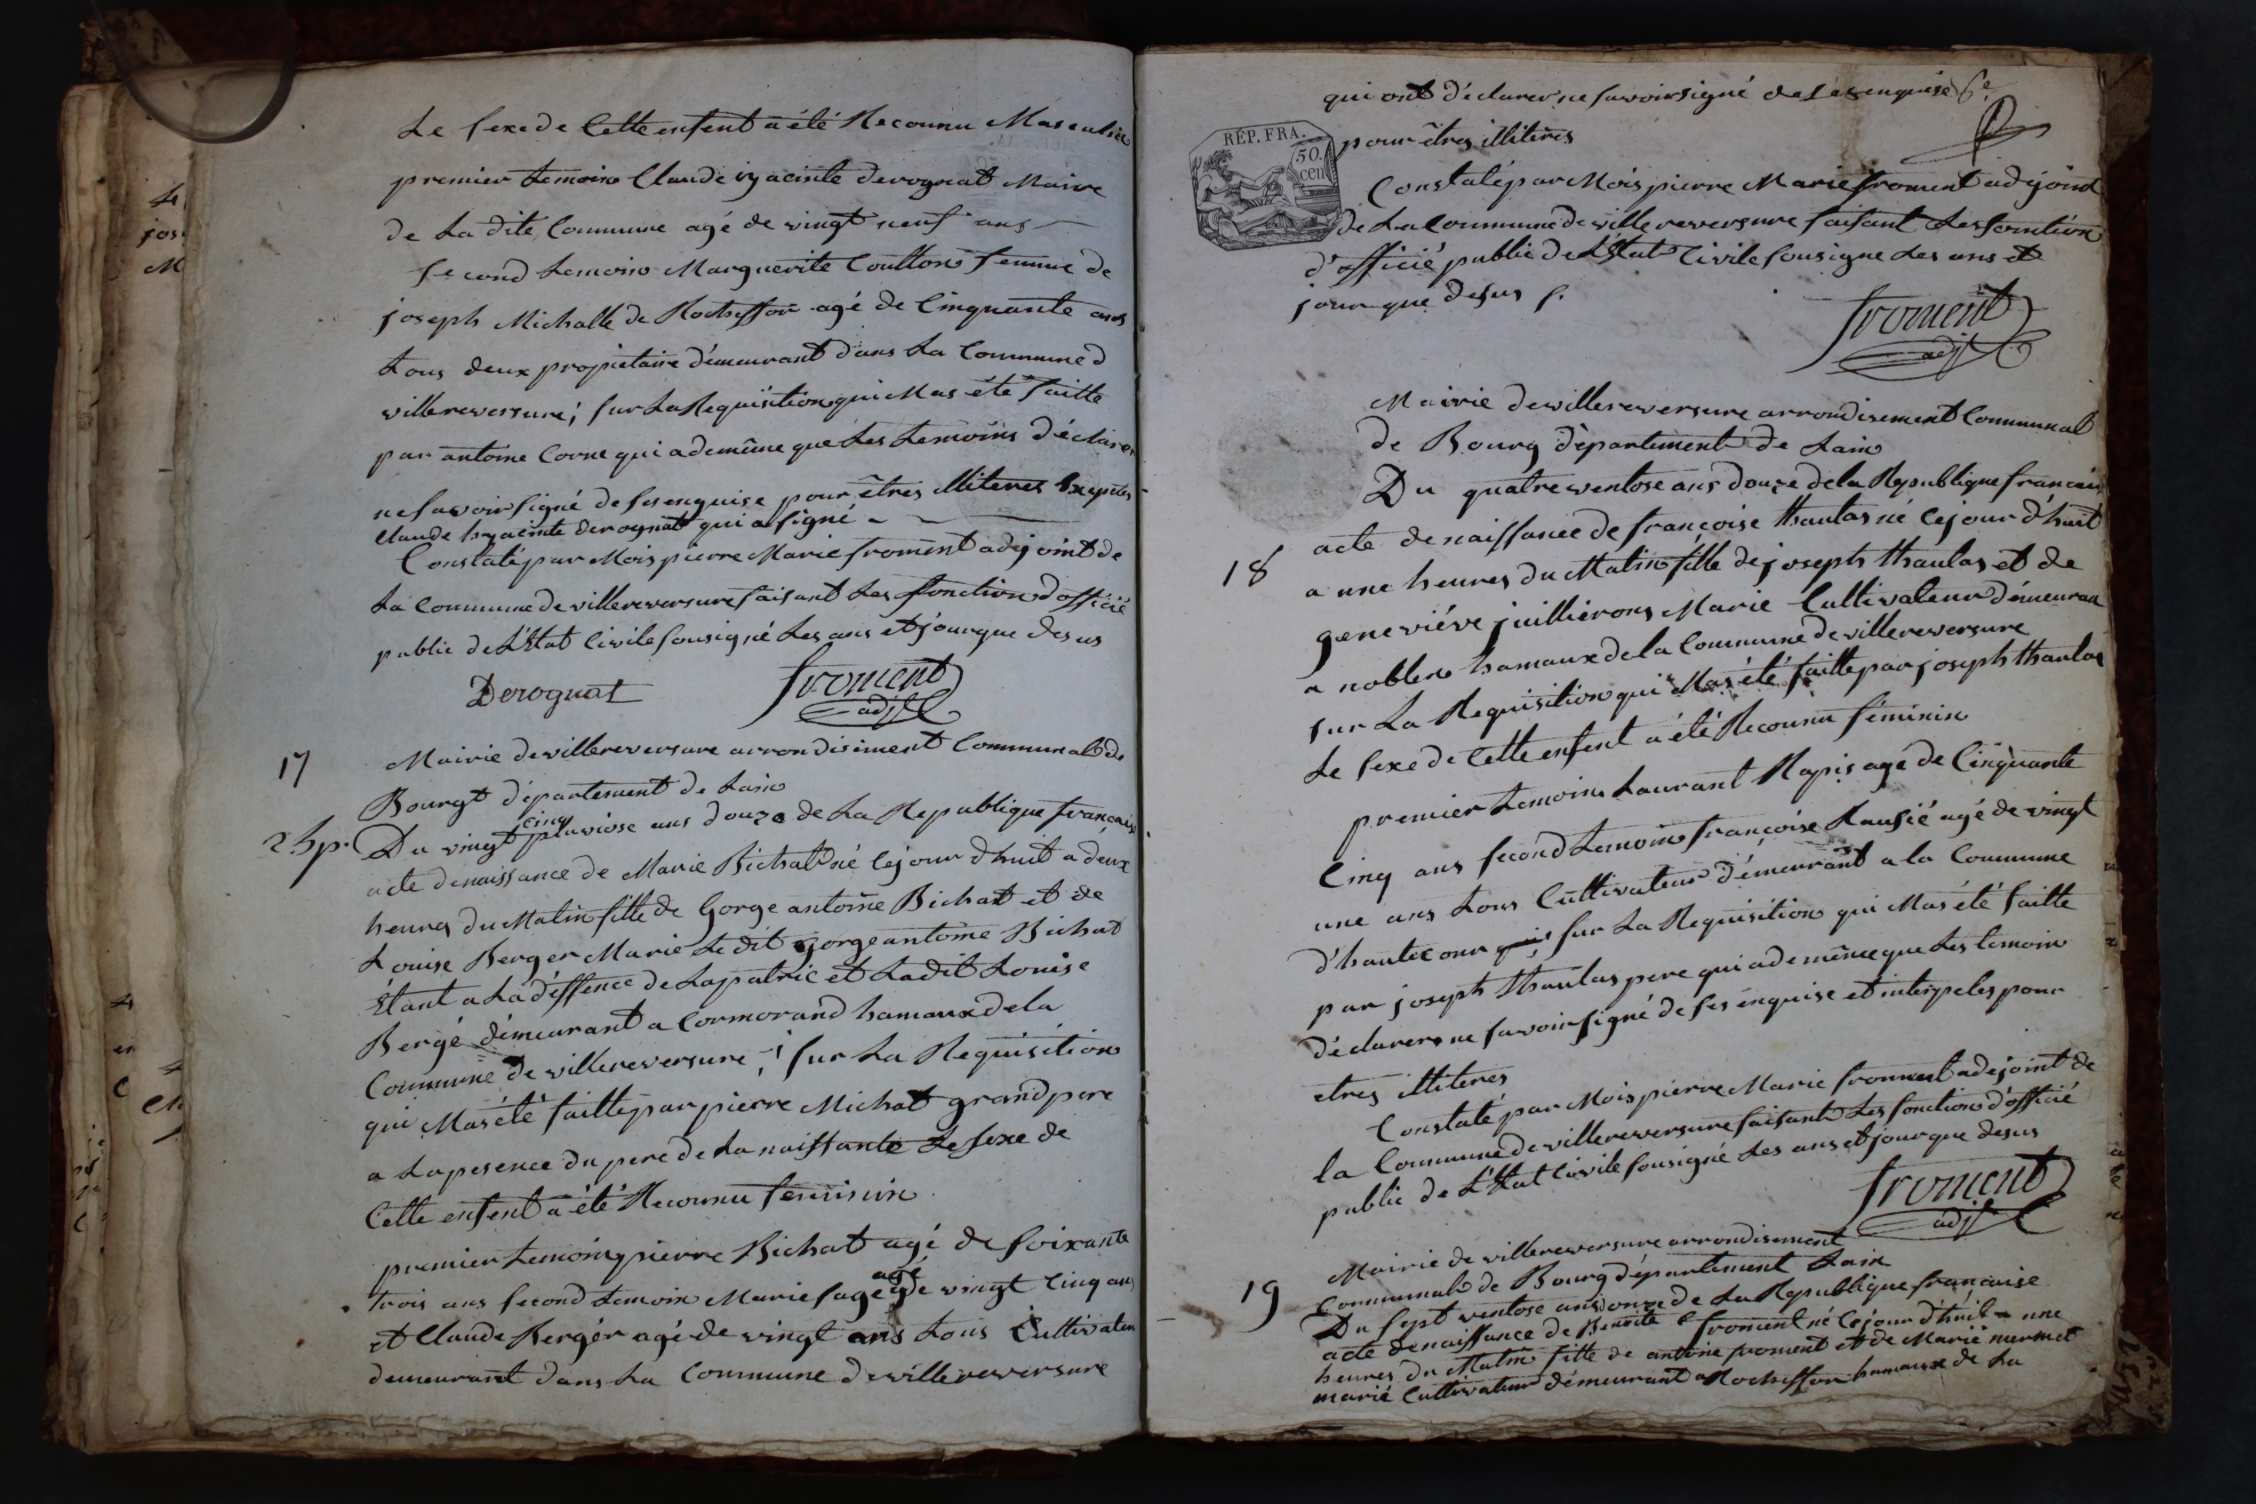 Le sexe de Cette enfent a été Reconnu Masculin
premier temoins Claude iyacinte derognat Maire
de La dite Commune agé de vingt neuf ans
second temoins Marguerite Coulton femme de
joseph Michalle de Rocheffor agé de Cinquante ans
tous deux propietaire démeurant dans La Commune d
villereversure; sur La Requisition qui Mas été faitte
par antoine Corne qui a demême que Les temoins déclarer
ne savoir signé de ses enquise pour êtres illiteres Exepter
Claude hyacinte derognat qui a signé
Constaté par Mois pierre Marie froment adjoint de
La Commune de villereversure faisant Les fonction d'officié
public de L'Etat Civile sousigné Les ans et jour que desus
Derognat froment
adjt
17 Mairie de villereversure arrondisement Communal de
Bourgt département de Lain
25 p. Du vingt cinq pluviose ans douze de La Republique français
acte de naissance de Marie Bichat né Cejour dhuit a deux
heures du Matin fille de Gorge antoine Bichat et de
Louise Berger Marie Le dit gorge antoine Bichat
Etant a La déffence de Lapatrie et Ladit Louise
Bergé démeurant a Cormorand hamaux de la
Commune de villereversure; sur La Requisition
qui Mas été faitte par pierre Michat grand pere
a La pesence du pere de La naissante Le sexe de
Cette enfent a été Reconnu feminin
premier temoins pierre Bichat agé de soixante
trois ans second temoin Marie sage agé de vingt Cinq ans
et Claude Bergér agé de vingt ans tous Cultivateur
demeurant dans La Commune de villereversure
qui ont déclarer ne savoir signé de Ses enquise 6e
pour êtres illiteres
RÉP. FRA.
50.
cen
Constaté par Mois pierre Marie froment adjoint
de La Commune de villereversure faisant Les fonction
d'officié public de L'Etat Civile sousigne Les ans et
jour que desus
froment
adjt
Mairie de villereversure arrondisement Communal
de Bourg département de Lain
Du quatre ventose ans douze de la Republique français
18 acte de naissance de françoise thaulas né Cejour d'huit
a une heures du Matin fille de joseph thaulas et de
geneviéve juillierons Marie Cultivateur démeurant
a noblens hamaux de la Commune de villereversure
sur La Requisition qui Mas été faitte par joseph thaulas
Le sexe de Cette enfent a été Reconnu féminin
premier temoins Laurant Rapis agé de Cinquante
Cinq ans second temoins françoise Rausié agé de vingt
une ans tous Cultivateur démeurant a la Commune
d'hautecour sur La Requisition qui Mas été faitte
par joseph thaulas pere qui a de même que Les temoin
déclarer ne savoir signé de ses enquise et interpeles pour
etres illiteres
Constaté par Mois pierre Marie froment adejoint de
la Commune de villereversure faisant Les fonction d'officié
public de L'Etat Civile sousigné Les ans et jour que desus
froment
adjt
Mairie de villereversure arrondisement
19 Communal de Bourg département Lain
Du sept ventose ans donze de La Republique française
acte de naissance de Benoite froment né Cejour d'huit a une
heures du Matin fille de antoine froment et de Marie mermet
marié Cultivateur démeurant a Rocheffor hamaux de La